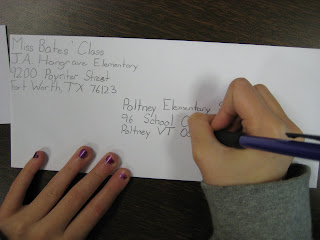 Miss Bates' Class
J.A. Hargrave Elementary
9200 Poynter Street
Fort Worth, TX 76123
Poltney Elementary
96 School
Poltney VT